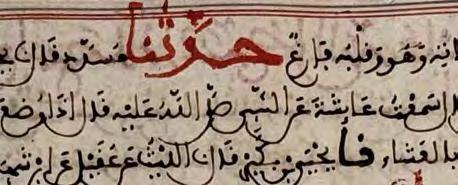 انه وهو وقلبه فارغ حدثنا مسدد قال يح
ل سمعت عايشة عن النبي صلى الله عليه قال اذا وضع
بالعشاء فا يحيى بن بكير قال الليث عن عقيل عن ابن شهـ